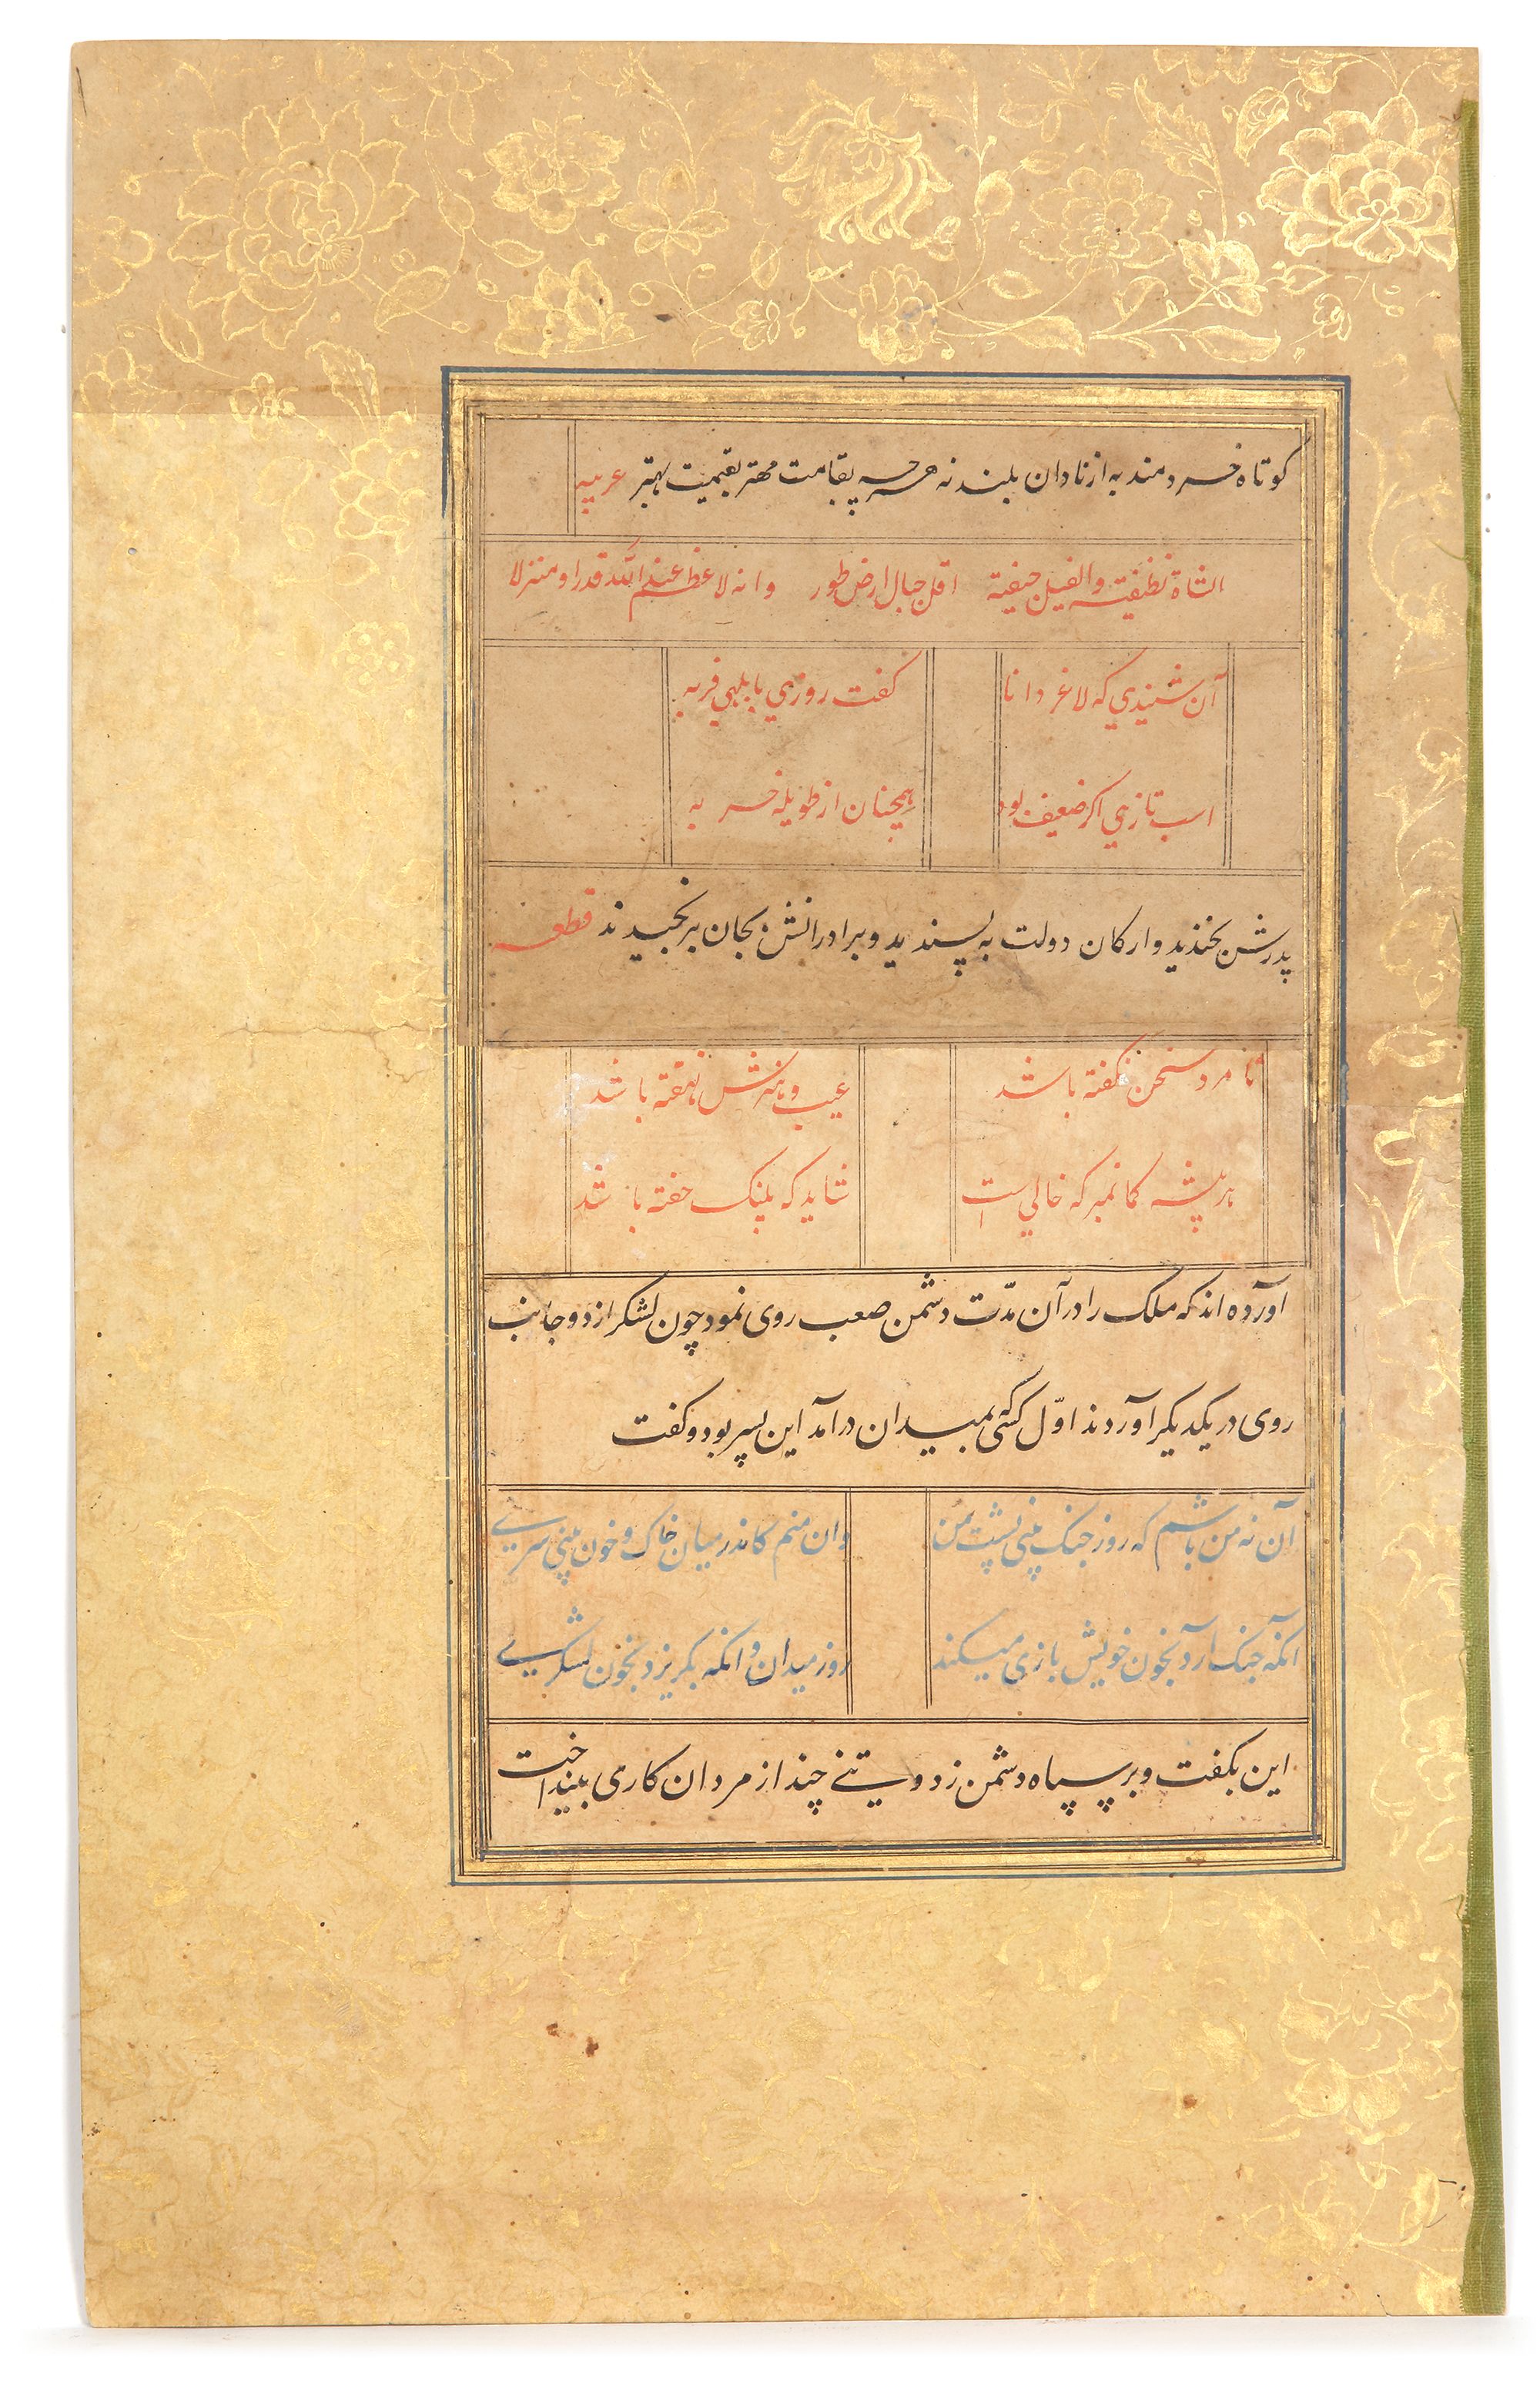 کوتاه خردمند به از نادان بلند نه هرچه بقامت مهتر بقیمت بهتر عربیه
الشاة نظیفة والفیل جیفة اقل جبال ارض طور وانه لاعظم عند الله قدرا ومنزلا
آن شنیدي که لاغر دانا گفت روزي بابلهي فربه
اسب تازي اکر ضعیف بود همچنان از طویله خر به
پدرش بخندید و ارکان دولت به پسندید و برادرانش بجان برنجیدند قطعه
تا مرد سخن نکفته باشد عیب و هنرش نهفته باشد
هر بیشه کمان مبر که خالي است شاید که پلنک خفته باشد
اورده اند که ملک را در آن مدّت دشمن صعب روی نمود چون لشکر از دو جانب
روی در یکدیکر آوردند اوّل کسی که بمیدان درآمد این پسر بود و کفت
آن نه من باشم که روز جنک بینی پشت من وان منم کاندر میان خاک و خون بینی سرے
انکه جنک آرد بخون خویش بازی میکند روز میدان وانکه بکریزد بخون لشکرے
این بکفت و بر سپاه دشمن زد و تنے چند از مردان کاری بینداخت